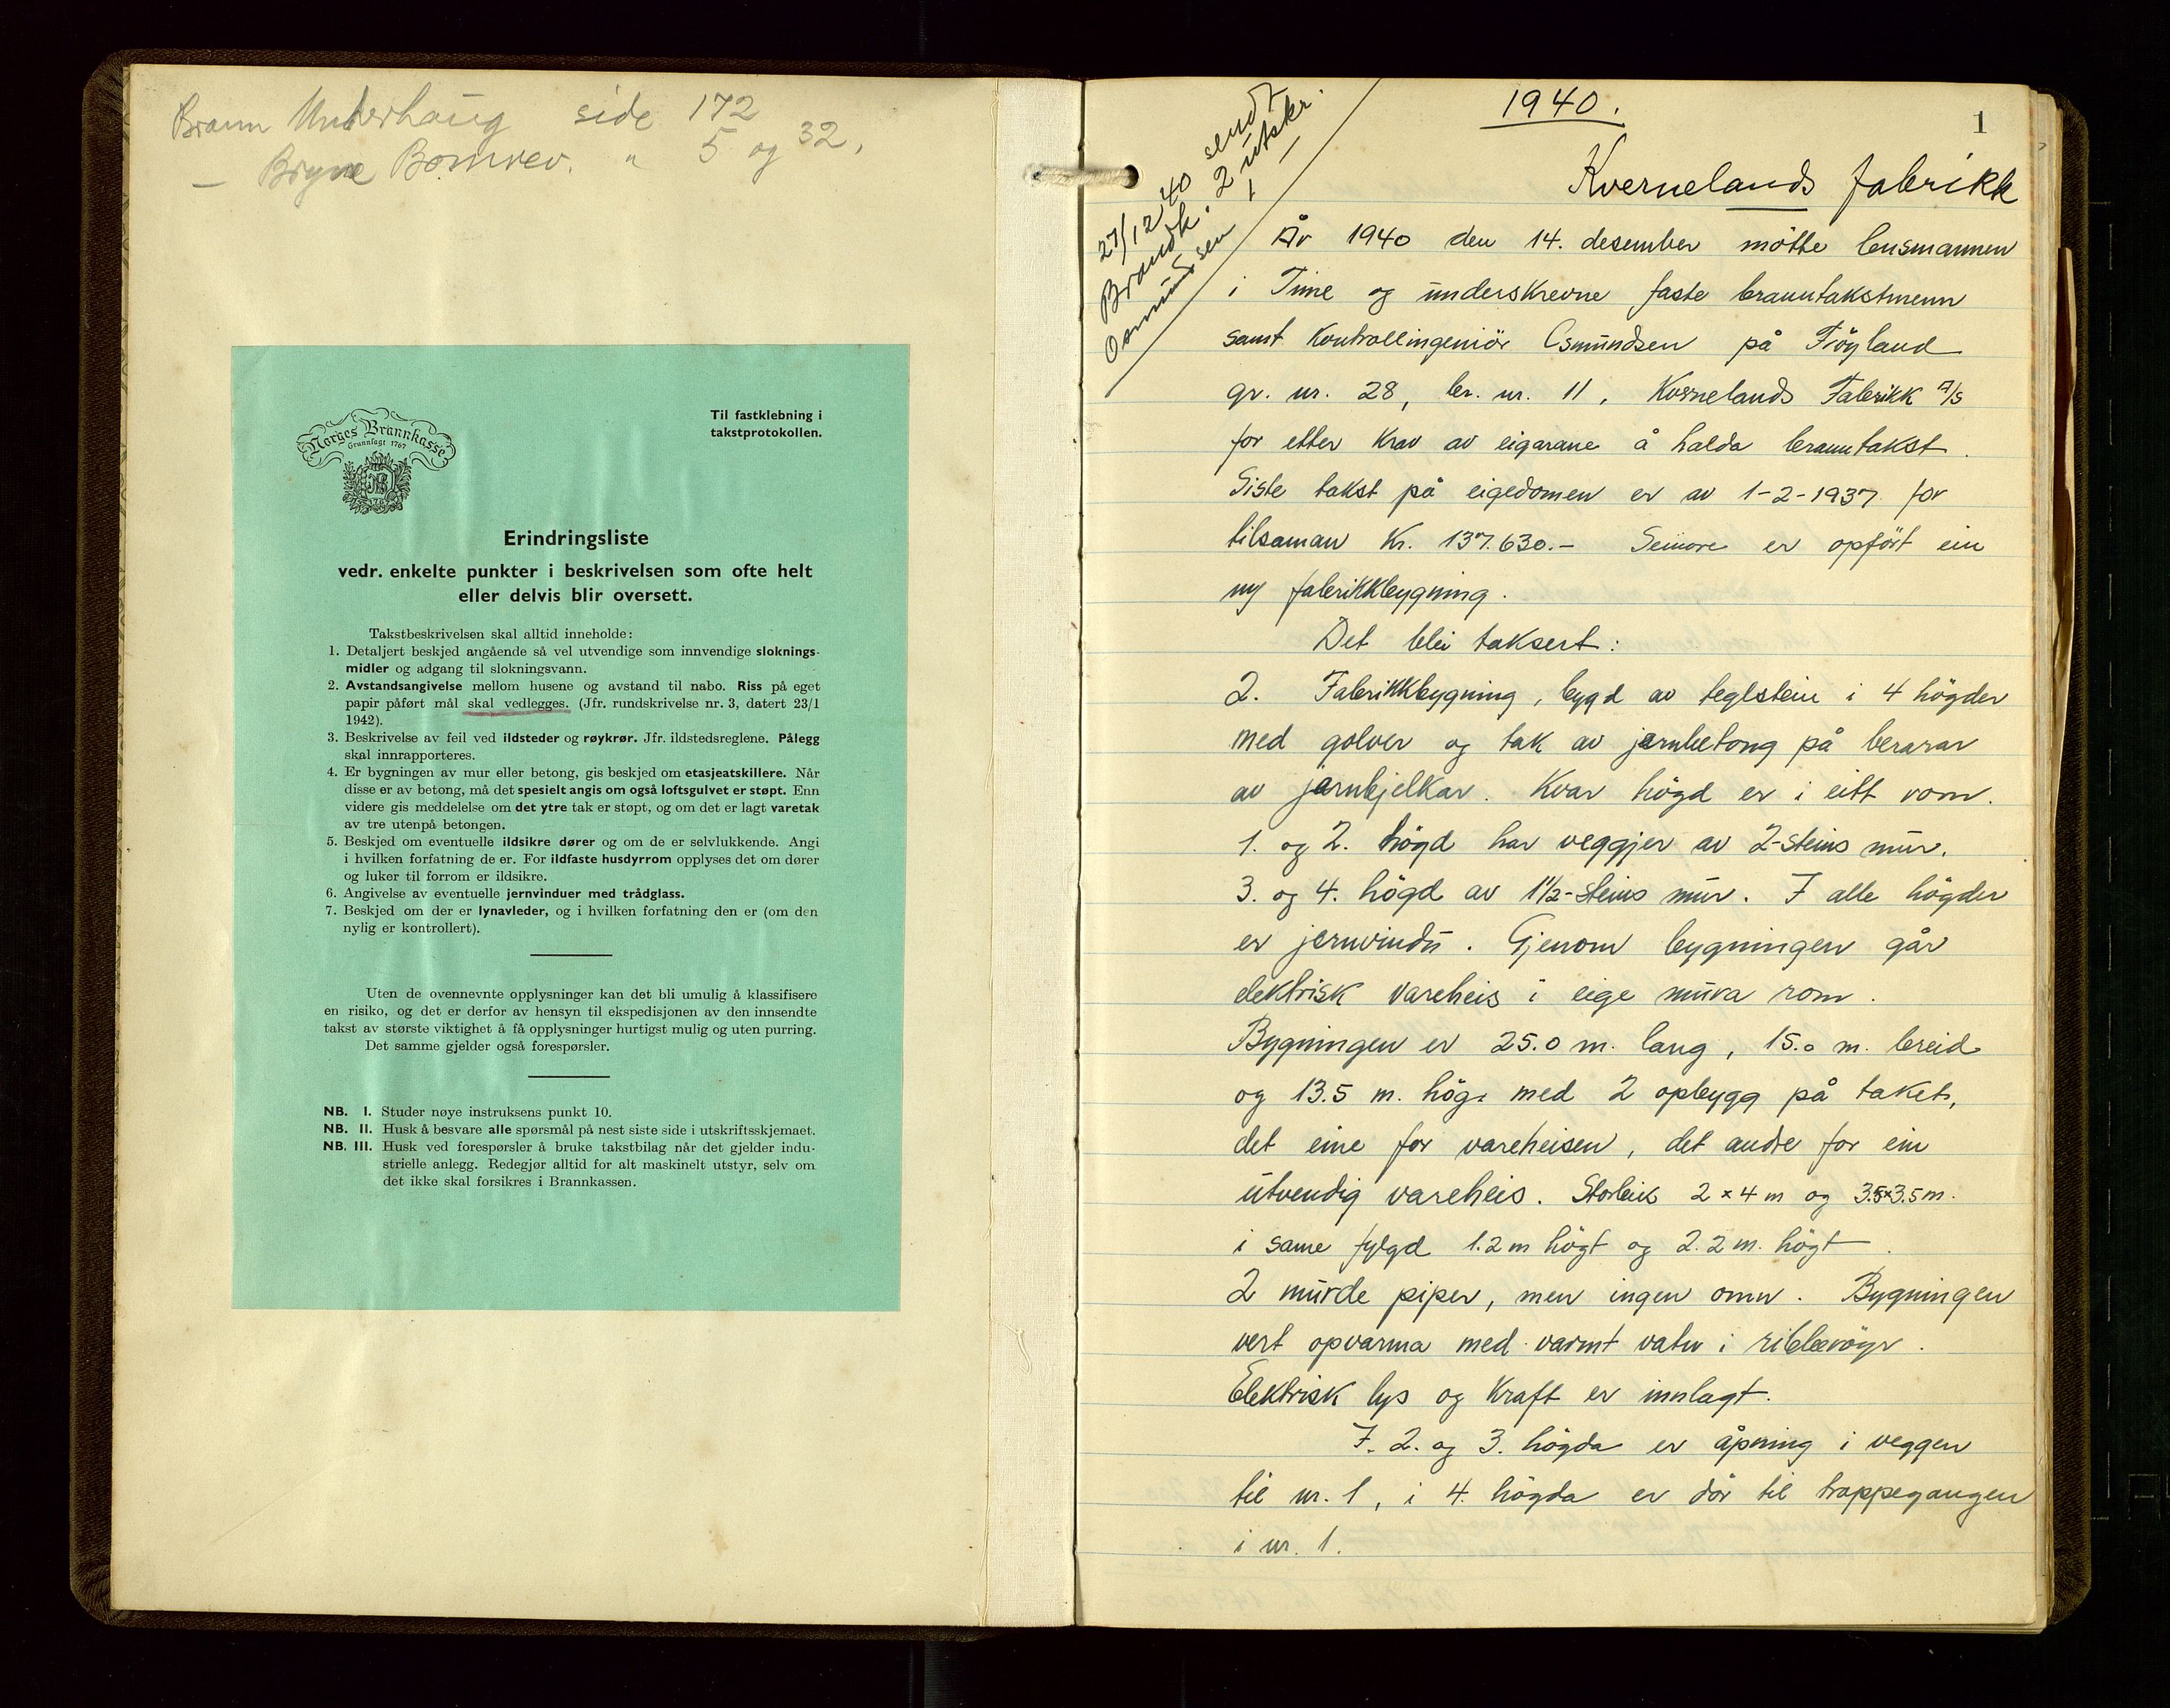 Brann Underhaug side 172
— Bryne Bomvev. " 5 og 32,
Norges Brannkasse
Grunnlagt 1767
Til fastklebning i
takstprotokollen.
Erindringsliste
vedr. enkelte punkter i beskrivelsen som ofte helt
eller delvis blir oversett.
Takstbeskrivelsen skal alltid inneholde:
1. Detaljert beskjed angående så vel utvendige som innvendige sloknings-
midler og adgang til slokningsvann.
2. Avstandsangivelse mellom husene og avstand til nabo. Riss på eget
papir påført mål skal vedlegges. (Jfr. rundskrivelse nr. 3, datert 23/1
1942).
3. Beskrivelse av feil ved ildsteder og røykrør. Jfr. ildstedsreglene. Pålegg
skal innrapporteres.
4. Er bygningen av mur eller betong, gis beskjed om etasjeatskillere. Når
disse er av betong, må det spesielt angis om også loftsgulvet er støpt. Enn
videre gis meddelelse om det ytre tak er støpt, og om det er lagt varetak
av tre utenpå betongen.
5. Beskjed om eventuelle ildsikre dører og om de er selvlukkende. Angi
i hvilken forfatning de er. For ildfaste husdyrrom opplyses det om dører
og luker til forrom er ildsikre.
6. Angivelse av eventuelle jernvinduer med trådglass.
7. Beskjed om der er lynavleder, og i hvilken forfatning den er (om den
nylig er kontrollert).
Uten de ovennevnte opplysninger kan det bli umulig å klassifisere
en risiko, og det er derfor av hensyn til ekspedisjonen av den innsendte
takst av største viktighet å få opplysninger hurtigst mulig og uten purring.
Det samme gjelder også forespørsler.
NB. I. Studer nøye instruksens punkt 10.
NB. II. Husk å besvare alle spørsmål på nest siste side i utskriftsskjemaet.
NB. III. Husk ved forespørsler å bruke takstbilag når det gjelder indu-
strielle anlegg. Redegjør alltid for alt maskinelt utstyr, selv om
det ikke skal forsikres i Brannkassen.
1940.
1
27/12 40 sendt
Brandk. 2 utskr.
Osmundsen 1 —
Kvernelands fabrikk
År 1940 den 14. desember møtte lensmannen
i Time og underskrevne faste branntakstmenn
samt Kontrollingeniör Osmundsen på Fröyland
gr. nr. 28, br. nr. 11, Kvernelands Fabrikk A/S
for etter krav av eigarane å halda branntakst.
Siste takst på eigedomen er av 1-2-1937 for
tilsaman Kr. 137.630.- Seinare er opfört ein
ny fabrikkbygning.
Det blei taksert:
2. Fabrikkbygning, bygd av teglstein i 4 högder
med golver og tak av jernbetong på berarar
av jernbjelkar. Kvar högd er i eitt rom.
1. og 2. högd har veggjer av 2-steins mur.
3. og 4. högd av 1½-steins mur. I alle högder
er jernvindu. Gjenom bygningen går
elektrisk vareheis i eige mura rom.
Bygningen er 25.0 m. lang, 15.0 m. breid
og 13.5 m. hög, med 2 opbygg på taket,
det eine for vareheisen, det andre for ein
utvendig vareheis. Storleik 2 x 4 m og 3.5x3.5 m.
i same fylgd 1.2 m högt og 2.2 m. högt.
2 murde piper, men ingen omn. Bygningen
vert opvarma med varmt vatn i ribberöyr.
Elektrisk lys og Kraft er innlagt.
I. 2. og 3. högda er åpning i veggen
til nr. 1, i 4. högda er dör til trappegangen
i nr. 1.